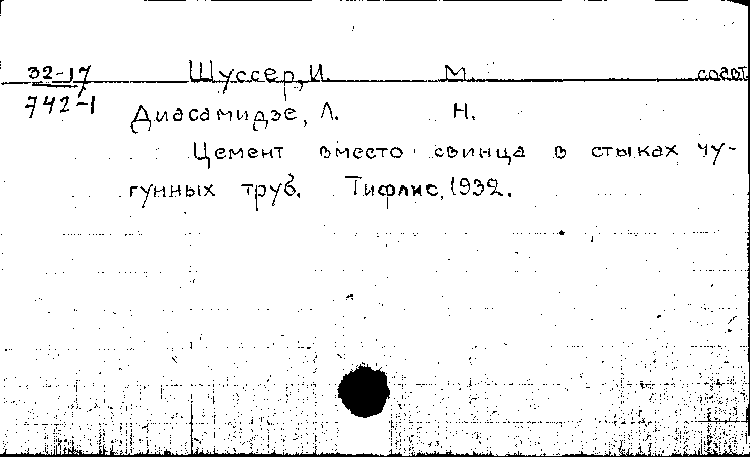 32-17 Шуссер, И. М. соавт.
742-1 Диасамидзе, Л. Н.
Цемент вместо свинца в стыках чу-
гунных труб. Тифлис, 1932.